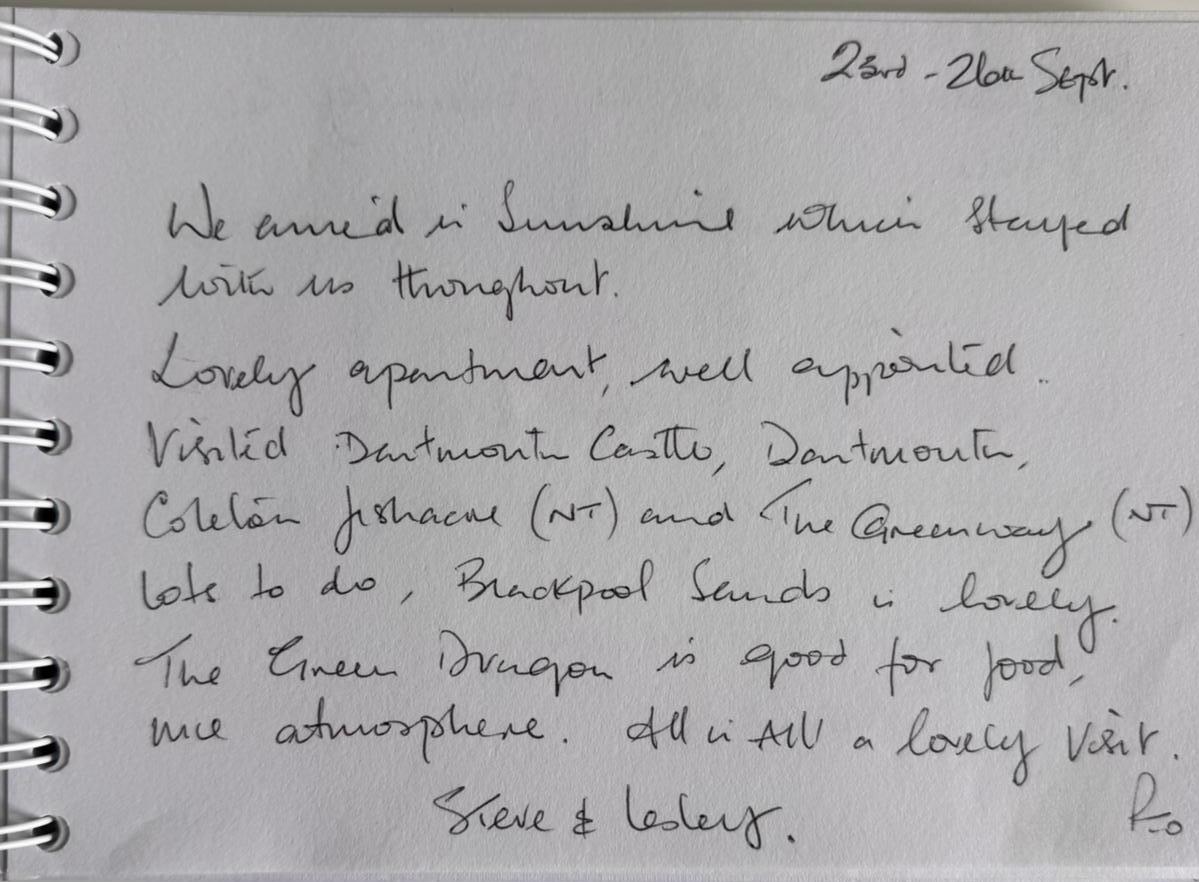 23rd - 26th Sept.
We arrived in Sunshine which stayed
with us throughout.
Lovely apartment, well appointed.
Visited Dartmouth Castle, Dartmouth,
Coleton fishacre (NT) and The Greenway (NT)
lots to do, Blackpool Sands is lovely.
The Green Dragon is good for food,
nice atmosphere. All in All a lovely Visit.
Steve & Lesley.